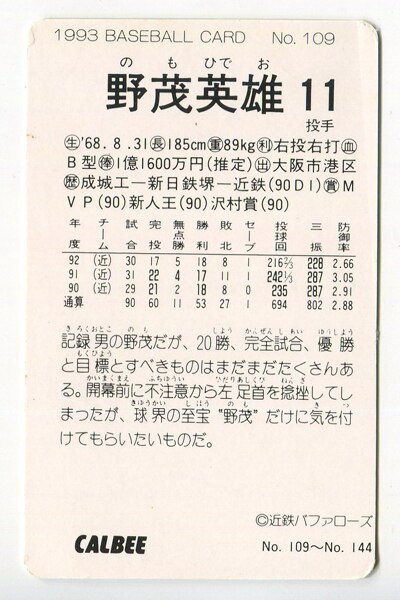 1993 BASEBALL CARD No. 109
のもひでお
野茂英雄 11
投手
生'68.8.31長185cm重89kg利右投右打血
B型俸1億1600万円(推定)出大阪市港区
歴成城工―新日鉄堺―近鉄(90D1)賞M
VP(90)新人王(90)沢村賞(90)
年度 チーム 試合 完投 無点勝 勝利 敗北 セーブ 投球回 三振 防御率
92 (近) 30 17 5 18 8 0 216⅔ 228 2.66
91 (近) 31 22 4 17 11 1 242⅓ 287 3.05
90 (近) 29 21 2 18 8 0 235 287 2.91
通算 90 60 11 53 27 1 694 802 2.88
きろくおとこ のも しょう かんぜんしあい ゆうしょう
記録男の野茂だが、20勝、完全試合、優勝
もくひょう
と目標とすべきものはまだまだたくさんあ
かいまくまえ ふちゅうい ひだりあしくび ねんざ
る。開幕前に不注意から左足首を捻挫してし
きゅうかい しほう のも き つ
まったが、球界の至宝"野茂"だけに気を付
けてもらいたいものだ。
©近鉄バファローズ
CALBEE No. 109〜No. 144